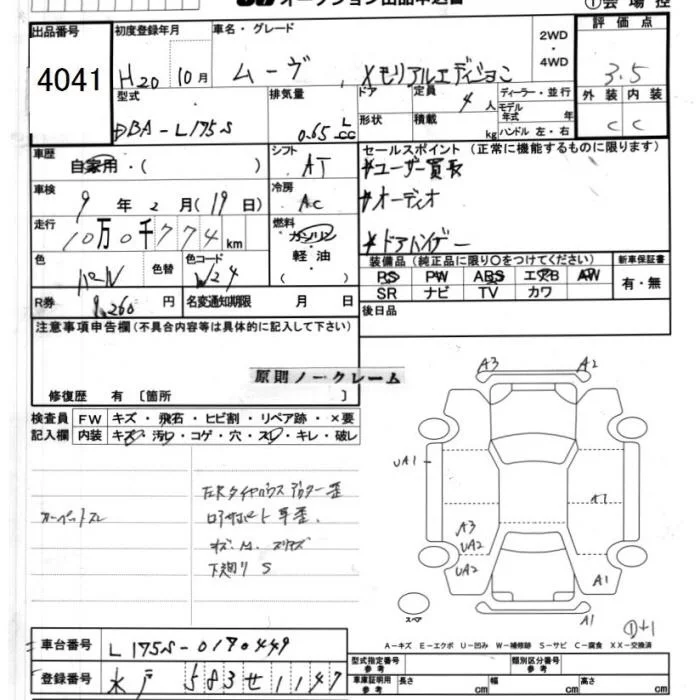 オークション出品申込書
①会場控
出品番号 4041
初度登録年月 H20 10月
車名・グレード ムーヴ Xメモリアルエディション
2WD・4WD
評価点 3.5
型式 DBA-L175S
排気量 0.65 L cc
ドア 形状
定員 4人
積載 kg
ディーラー・並行
モデル年式 年
ハンドル 左・右
外装 内装
C C
車歴 自家用・( )
シフト AT
セールスポイント(正常に機能するものに限ります)
*ユーザー買長
車検 9年2月(19日)
冷房 AC
*オーディオ
走行 10万0千774km
燃料 ガソリン 軽油 ( )
*ドアハンドノー
色 パール 色替
色コード W24
装備品(純正品に限り○をつけてください)
PS PW ABS エアB AW
SR ナビ TV カワ
新車保証書 有・無
R券 9,260円
名変通知期限 月 日
後日品
注意事項申告欄(不具合内容等は具体的に記入して下さい)
原則ノークレーム
修復歴 有〔箇所 〕
検査員記入欄
FW キズ・飛石・ヒビ割・リペア跡・×要
内装 キズ・汚れ・コゲ・穴・スレ・キレ・破レ
カーペットスレ
ロアサポート 歪.
キズ.M.
下廻り S
A3 A2
UA1
A1
A3
UA2
UA2
A1
A1
スペア
A-キズ E-エクボ U-凹み W-補修跡 S-サビ C-腐食 XX-交換済
車台番号 L175S-0170449
登録番号 水戸 583 せ 1147
型式指定番号 参考
類別区分番号 参考
車庫証明用 参考 長さ cm 幅 cm 高さ cm